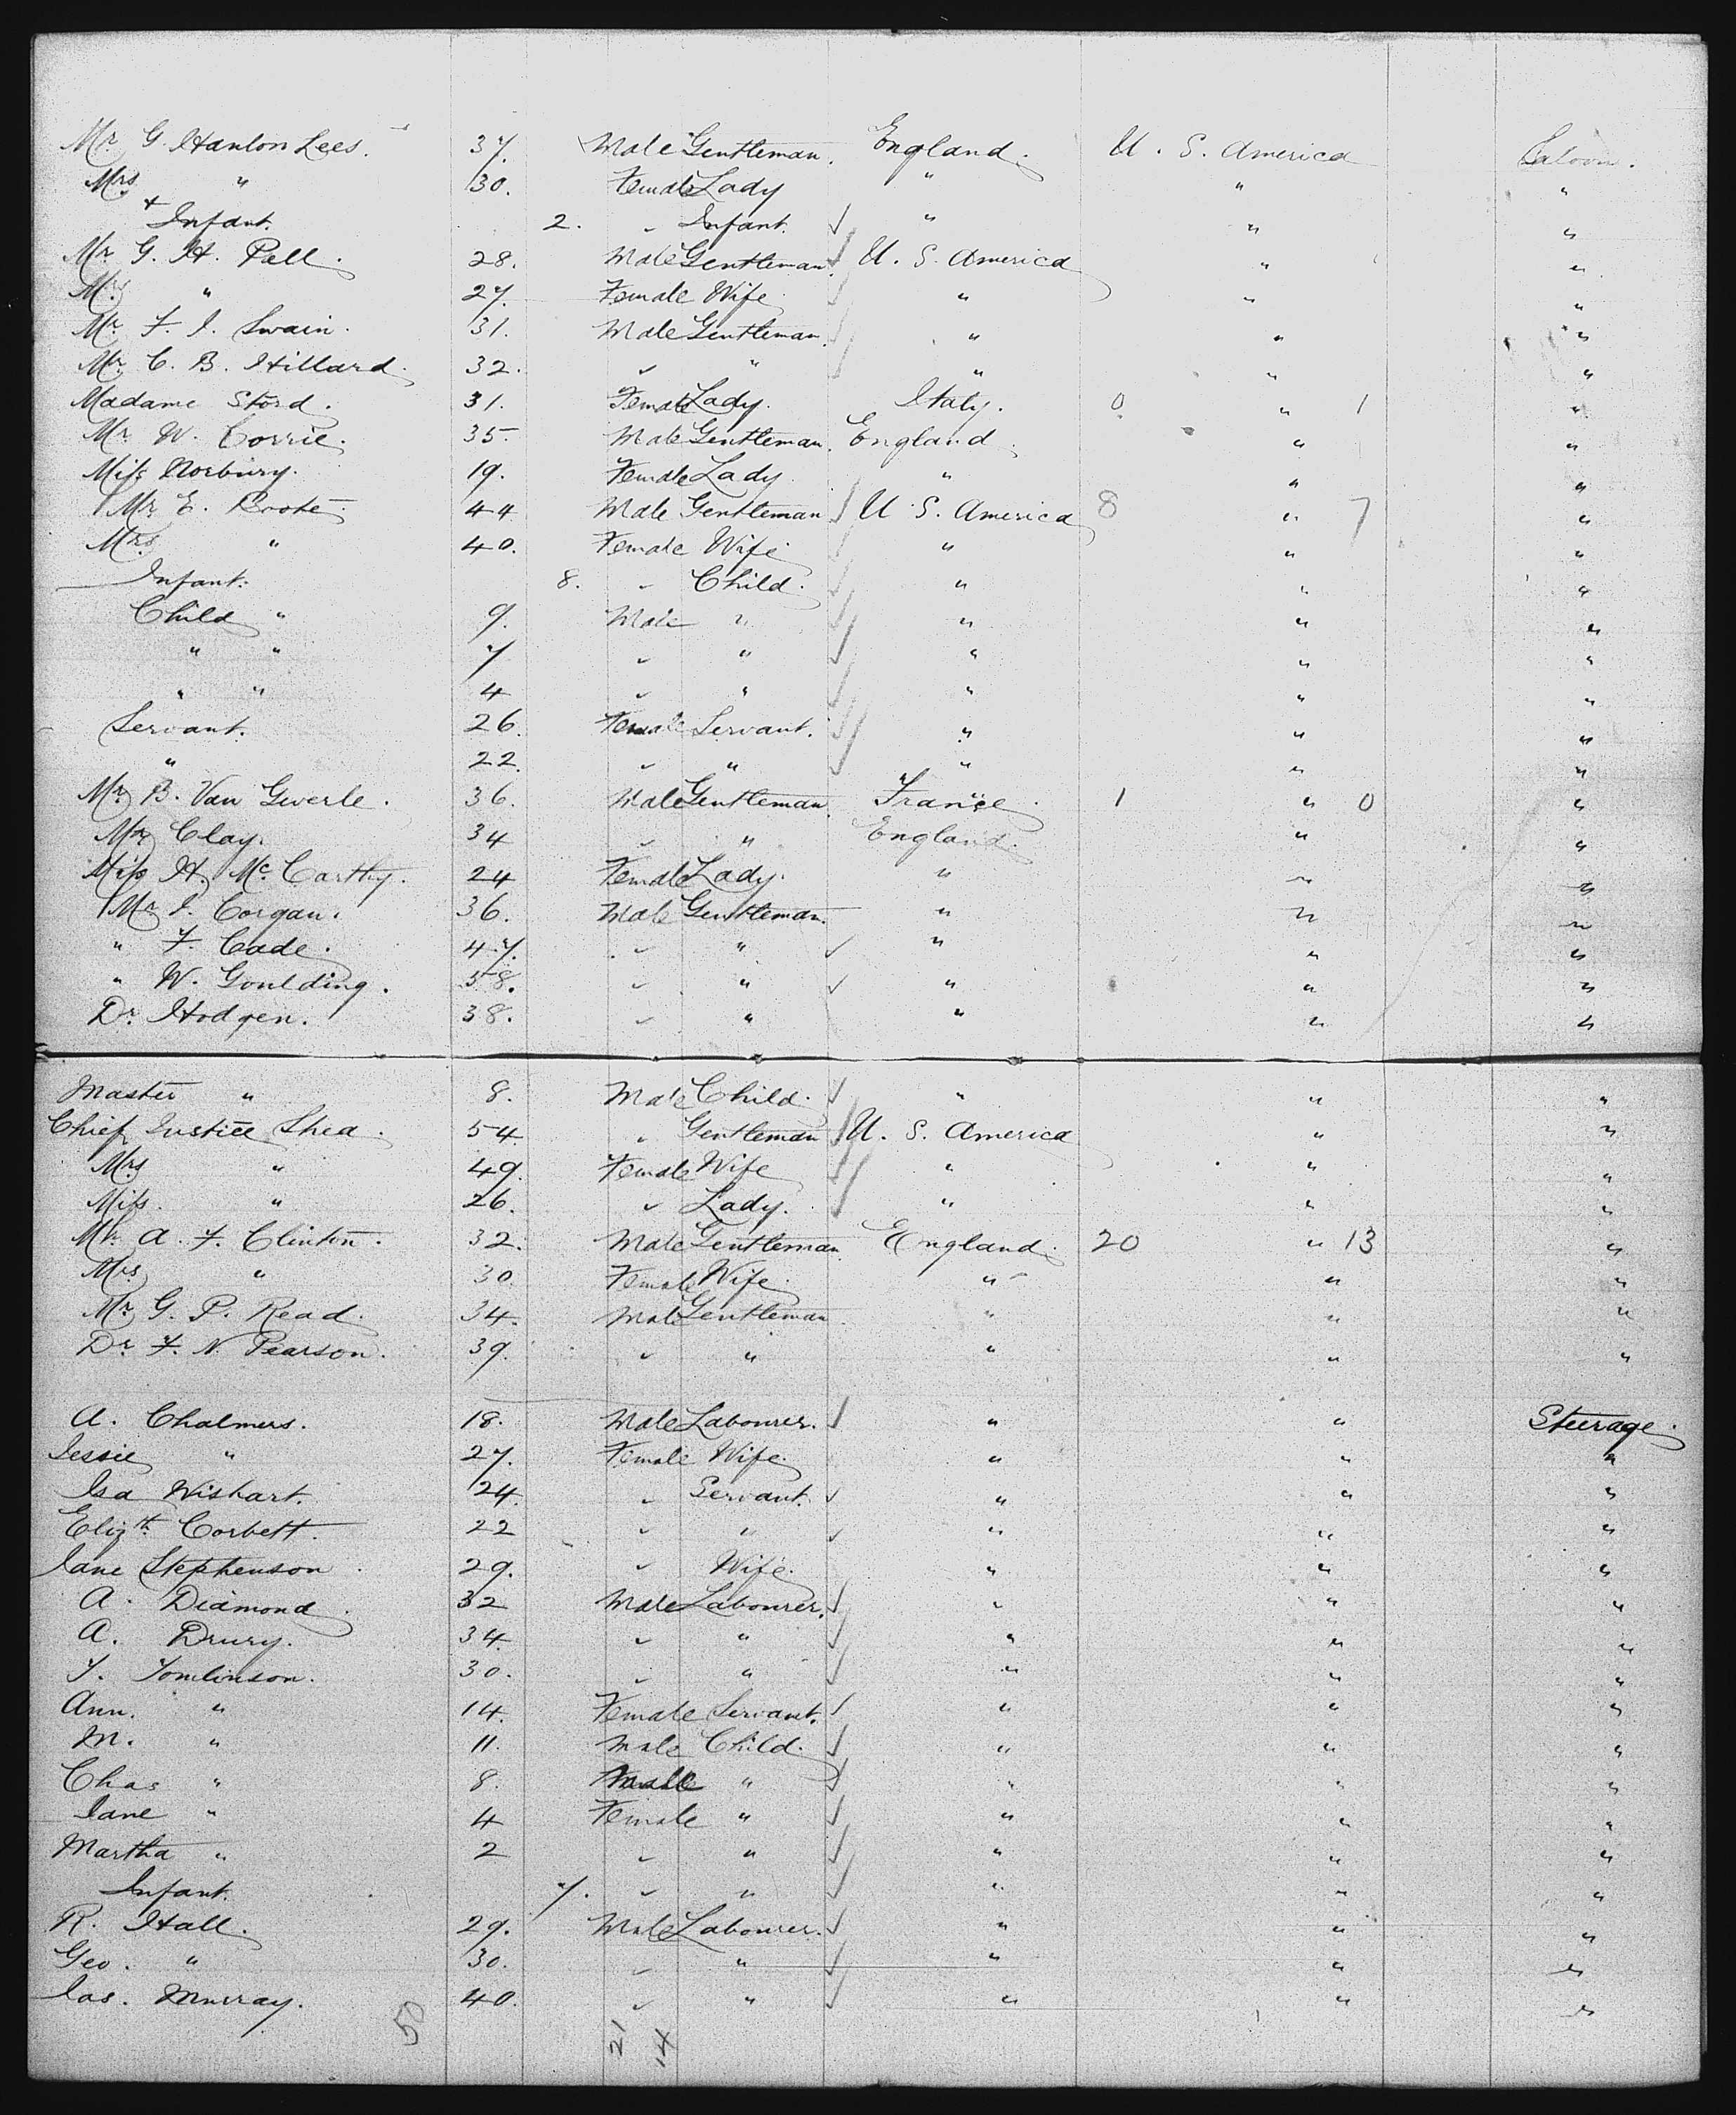 Mr G. Hanlon Lees. 37. Male Gentleman. England. U. S. America Saloon.
Mrs " 30. Female Lady " " "
+ Infant. 2. " Infant. " " "
Mr G. H. Pell. 28. Male Gentleman. U. S. America " "
Mrs " 27. Female Wife " " "
Mr F. J. Swain. 31. Male Gentleman. " " "
Mr C. B. Hillard. 32. " " " " "
Madame Stord. 31. Female Lady. Italy. 0 " 1 "
Mr W. Corrie. 35. Male Gentleman. England. " "
Miss Norbury. 19. Female Lady " " "
Mr E. Boote. 44 Male Gentleman U. S. America 8 " 7 "
Mrs " 40. Female Wife " " "
Infant. 8. " Child. " " "
Child " 9. Male " " " "
" " 7 " " " " "
" " 4 " " " " "
Servant. 26. Female Servant. " " "
" 22. " " " " "
Mr B. Van Gwerle. 36. Male Gentleman France. 1 " 0 "
Mr Clay. 34 " " England. " "
Miss H. Mc Carthy. 24 Female Lady. " " "
Mr J. Corgan. 36. Male Gentleman. " " "
" F. Cade. 47. " " " " "
" W. Goulding. 58. " " " " "
Dr Hodgen. 38. " " " " "
Master " 8. Male Child. " " "
Chief Justice Shea. 54 " Gentleman U. S. America " "
Mrs " 49. Female Wife " " "
Miss " 26. " Lady. " " "
Mr A. F. Clinton. 32. Male Gentleman England. 20 " 13 "
Mrs " 30 Female Wife. " " "
Mr G. P. Read. 34. Male Gentleman. " " "
Dr F. N. Pearson. 39. " " " " "
A. Chalmers. 18. Male Labourer. " " Steerage.
Jessie " 27. Female Wife. " " "
Isa Wishart. 24. " Servant. " " "
Elizth Corbett. 22 " " " " "
Jane Stephenson. 29. " Wife. " " "
A. Diamond. 32 Male Labourer. " " "
A. Drury. 34. " " " " "
T. Tomlinson. 30. " " " " "
Ann. " 14. Female Servant. " " "
M. " 11. Male Child. " " "
Chas " 8. Male " " " "
Jane " 4 Female " " " "
Martha " 2 " " " " "
Infant. 7. " " " " "
R. Hall. 29. Male Labourer. " " "
Geo. " 30. " " " " "
Jas. Murray. 40. " " " " "
50 21 14